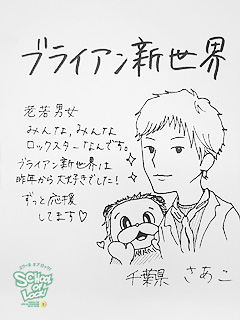 ブライアン新世界
老若男女
みんな、みんな
ロックスターなんです。
ブライアン新世界は
昨年から大好きでした!
ずっと応援
してます♡
千葉県 さあこ
SCHOOL
OF
LOCK!